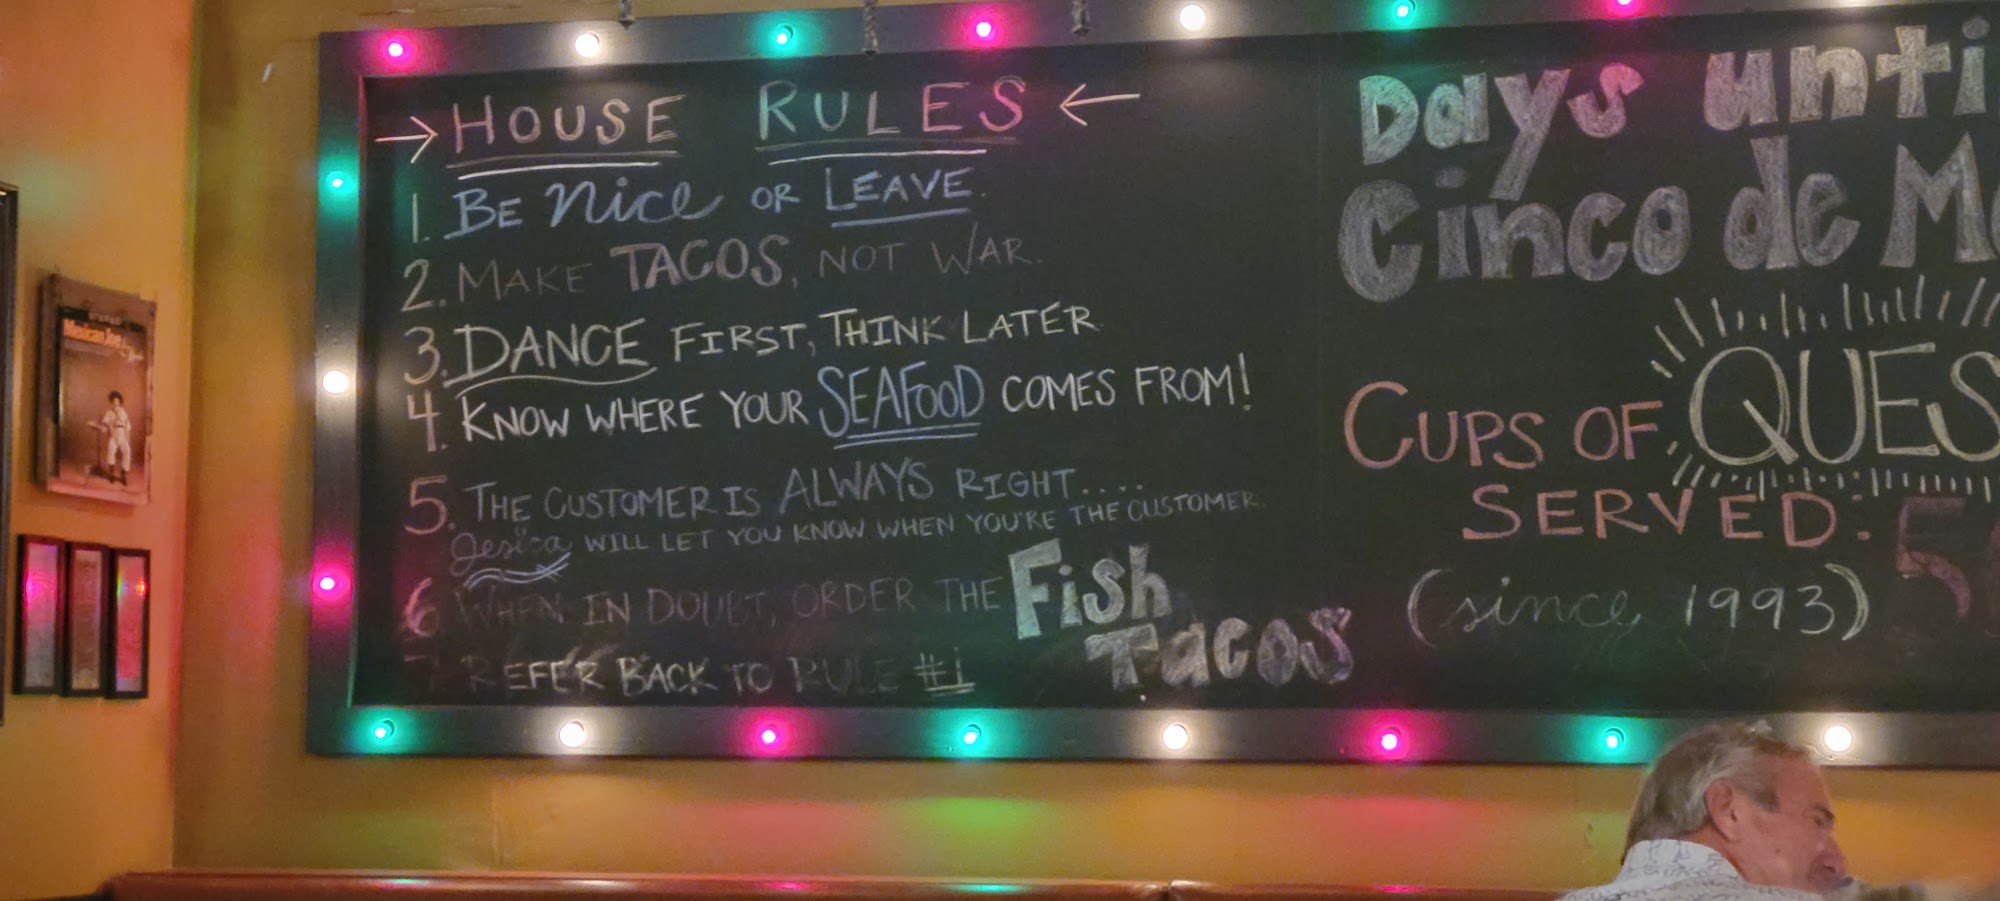 → HOUSE RULES ←
1. BE nice OR LEAVE.
2. MAKE TACOS, NOT WAR.
3. DANCE FIRST, THINK LATER
4. KNOW WHERE YOUR SEAFOOD COMES FROM!
5. THE CUSTOMER IS ALWAYS RIGHT....
WILL LET YOU KNOW WHEN YOU'RE THE CUSTOMER.
6 WHEN IN DOUBT, ORDER THE Fish
Tacos
7 REFER BACK TO RULE #1
Days unti
Cinco de M
CUPS OF QUES
SERVED:
(since 1993)